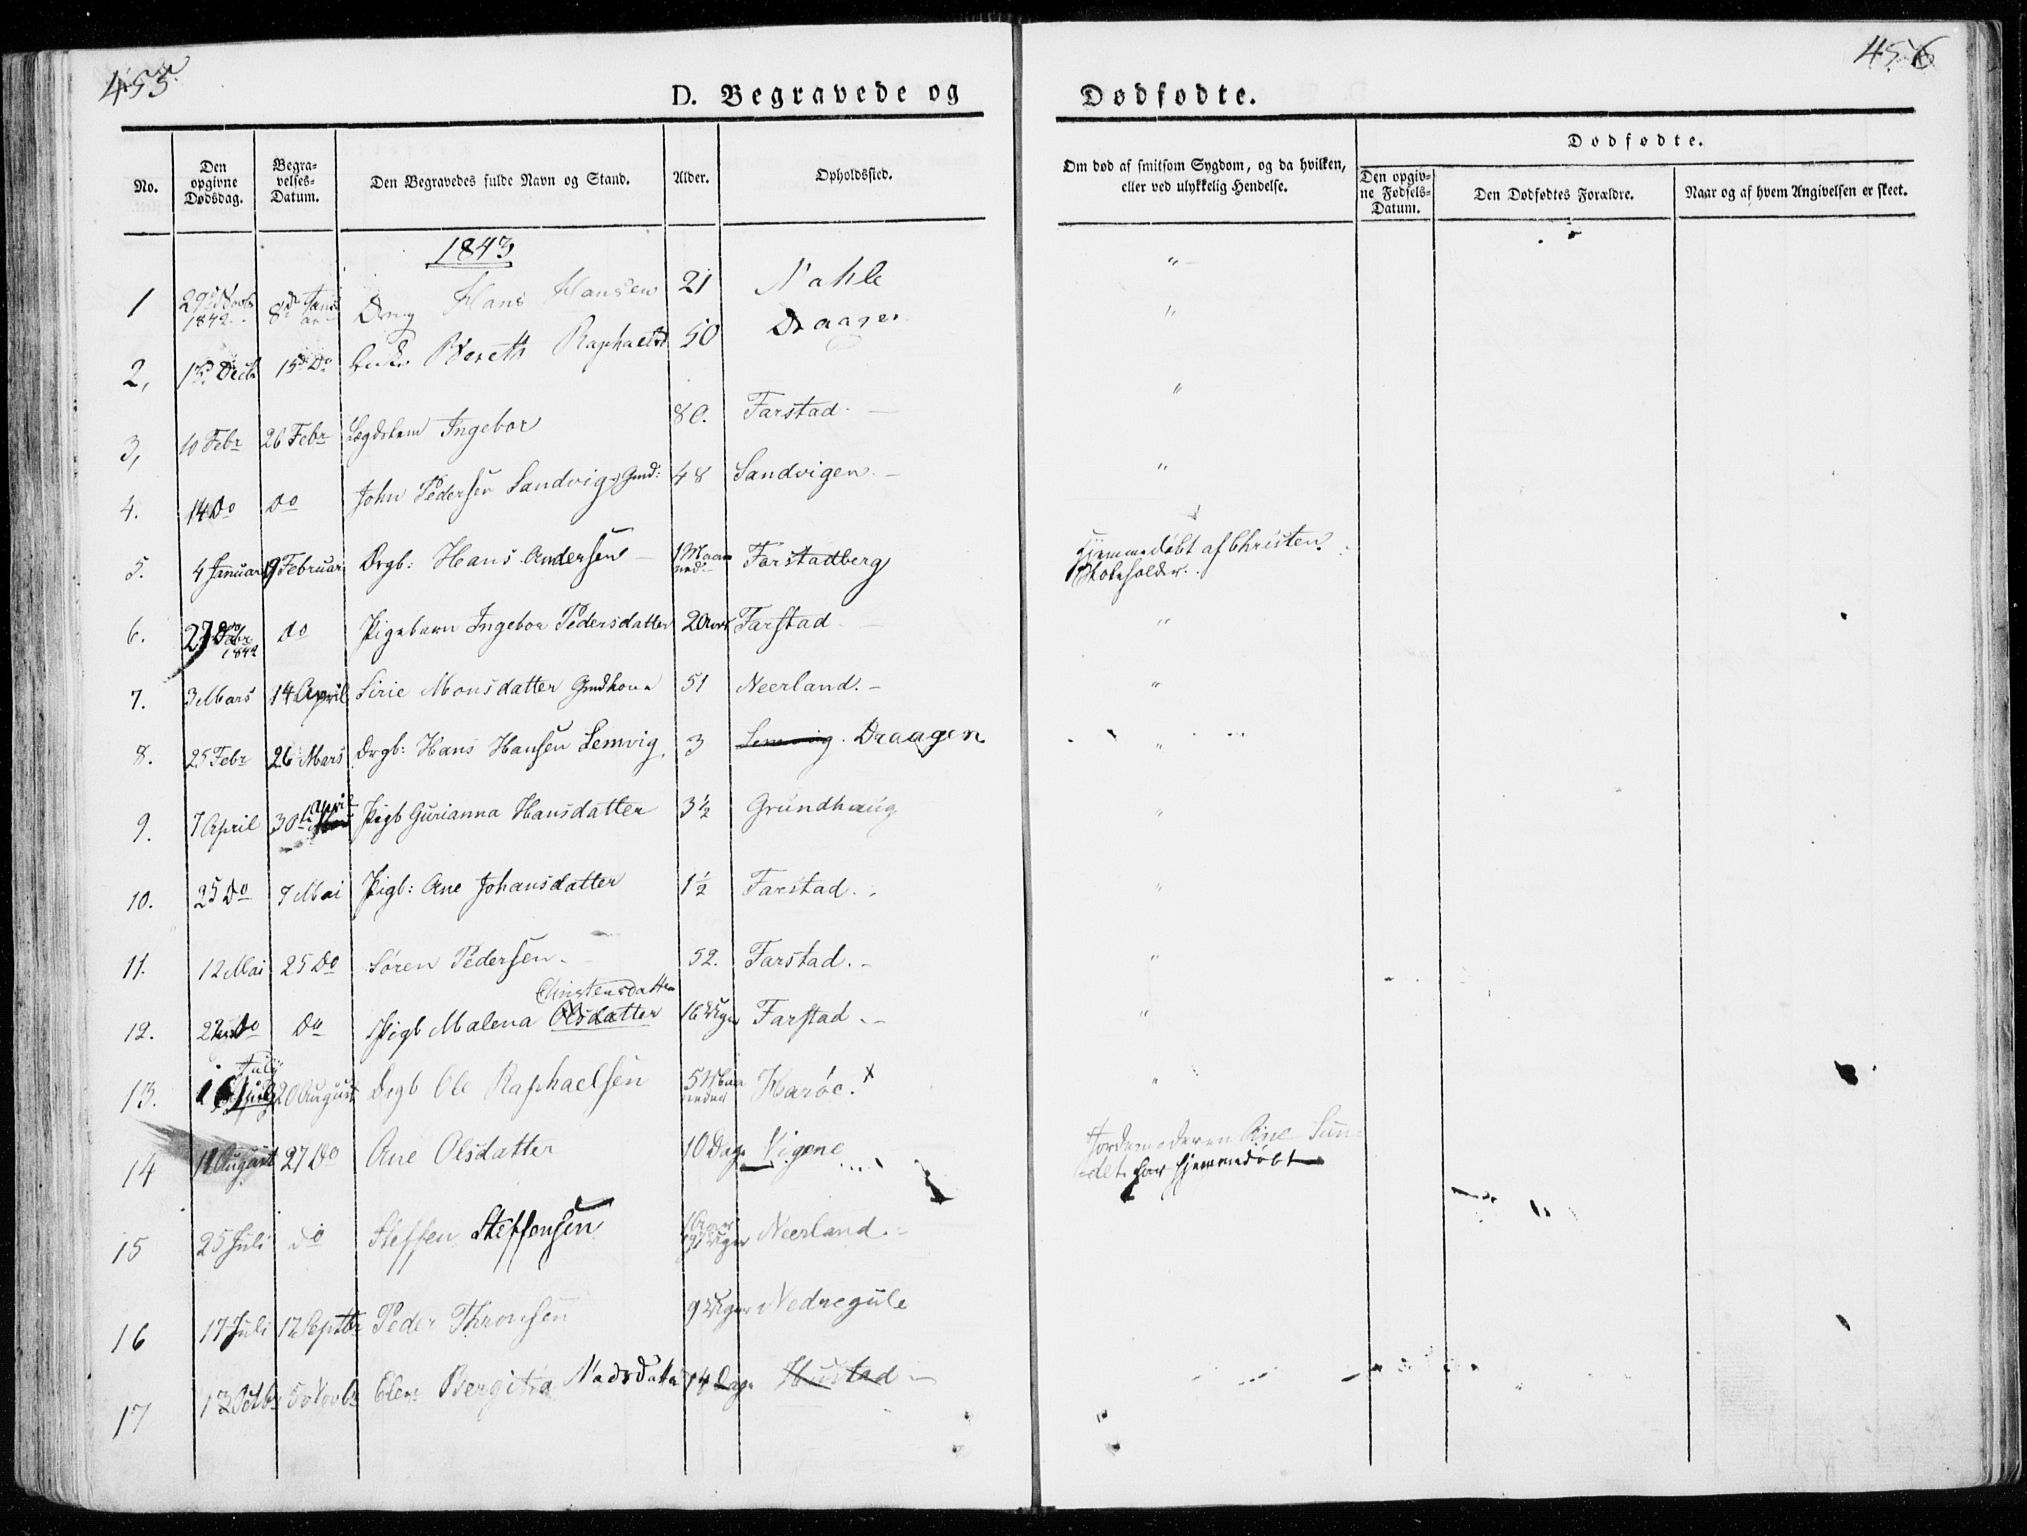 455
456
D. Begravede og Dødfødte.
No. Den opgivne Dødsdag. Begravelses-Datum. Den Begravedes fulde Navn og Stand. Alder. Opholdssted. Om død af smitsom Sygdom, og da hvilken, eller ved ulykkelig Hendelse. Dødfødte. Den opgivne Fødsels-Datum. Den Dødfødtes Forældre. Naar og af hvem Angivelsen er skeet.
1843
1 29 Novb 1842 8de Januar Dreng Hans Hansen 21 Nahle "
2, 15 Decb 15 Do Enke Bereth Raphaelsd 50 Draagen "
3, 10 Febr 26 Febr Lægdslem Ingebor 80. Farstad. "
4. 14 Do Do John Pedersen Sandvig Gmd: 48 Sandvigen "
5. 4 Januar 19 Februar Drgb: Hans Andersen 1 Maaned Farstadberg Hjemmedøbt af Christen Skoleholder.
6. 27 Decbr 1842 do Pigebarn Ingebor Pedersdatter 2 Aar Farstad "
7. 3 Mars 14 April Sirie Monsdatter Gmdkone 51 Neerland. "
8. 25 Febr 26 Mars Drgb: Hans Hansen Lemvig 3 Lemvig. Draagen "
9. 7 April 30 April Pigb Gurianna Hansdatter 3½ Grundhaug "
10. 25 Do 7 Mai Pigb: Ane Johansdatter 1½ Farstad. "
11. 12 Mai 25 Do Søren Pedersen 52. Farstad. "
Christensdatter
12. 22 Do Do Pigb Malena Olsdatter 16 Uger Farstad. "
13. 16 July 20 August Drgb Ole Raphaelsen 5 Maaneder Harøe. x "
14 11 August 27 Do Ane Olsdatter 10 Dage Vigene Jordemoderen Ane Sundet har hjemmedøbt
15 25 Juli do Steffen Steffensen 1 Aar Uger Neerland
16 17 Juli 17 Septbr Peder Thronsen 9 Uger Nedregule
17 13 Octbr 5 Novbr Elen Bergitha Madsdatter 14 Dage Hustad